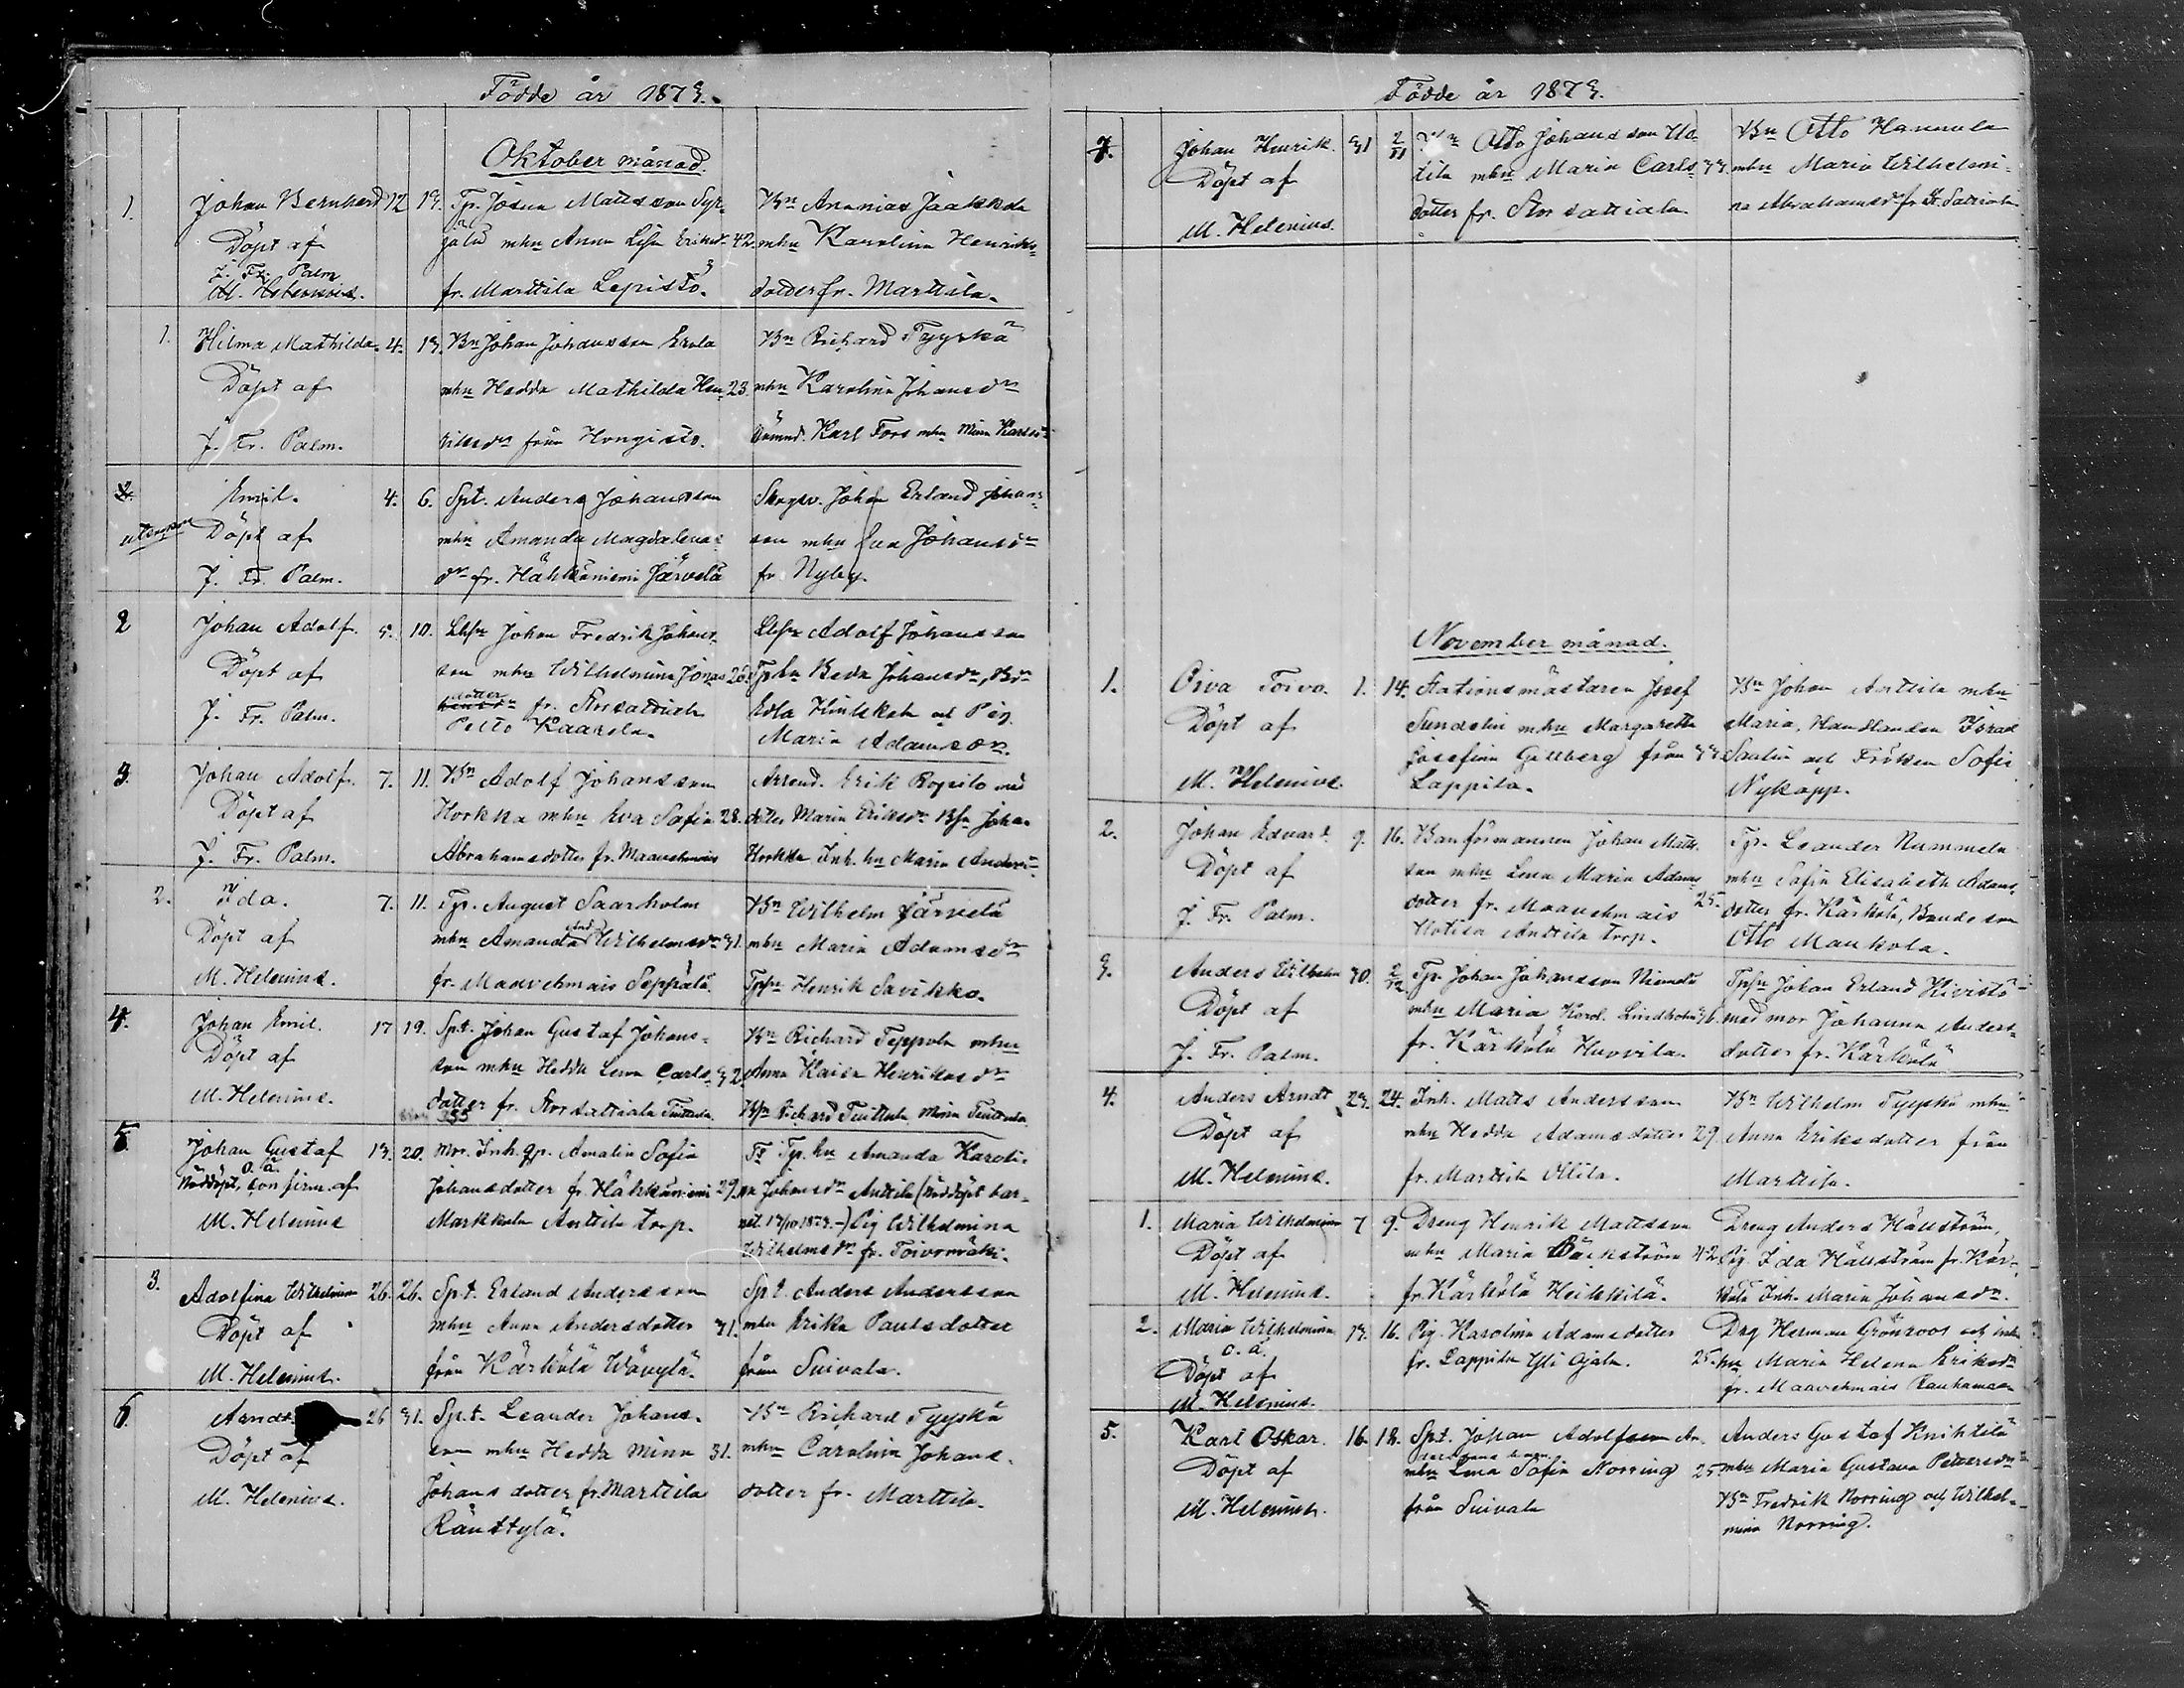 Födde år 1873.
Oktober månad.
1. Johan Bernhard 12 13. Tp. Josua Mattsson Syr- Bn Ananias Jaakkola
Döpt af jälä mhu Anna Lisa Eriksdr 42. mhu Karolina Henriks-
J. Fr. Palm
M. Helenius. fr. Marttila Lepistö. dotter fr. Marttila.
1. Hilma Mathilda 4. 13. Bn Johan Johansson Erola Bn Richard Tyyskä
Döpt af mhu Hedda Mathilda Hen- 23. mhu Karolina Johansdr
J. Fr. Palm. riksdr från Hongisto. Karl Fors mhu Mina Karlsdr
2. Emil. 4. 6. Spt. Anders Johansson Skogsv. Johan Erland Johans-
Döpt af mhu Amanda Magdalena son mhu Eva Johansdr
J. Fr. Palm. dr fr. Hähkäniemi Järvelä fr. Nyby.
2 Johan Adolf. 5. 10. Johan Fredrik Johans- Adolf Johansson
Döpt af son mhu Wilhelmina Jonas 26. Beda Johansdr, Bdr
dotter fr. Storsattiala Edla och Pig.
J. Fr. Palm. Pelto Kaarela. Maria Adamsdr.
3. Johan Adolf. 7. 11. Bn Adolf Johansson Arrend. Erik Ropilo med
Döpt af Horkka mhu Eva Sofia 28. dotter Maria Eriksdr Bsn Johan
J. Fr. Palm. Abrahamsdotter fr. Maavehmais Horkka Inh. hu Maria Andersdr.
2. Ida. 7. 11. Tp. August Saarholm Bn Wilhelm Järvelä
Döpt af mhu Amanda Wilhelmsdr 31. mhu Maria Adamsdr
M. Helenius. fr. Maavehmais Seppälä. Tpsn Henrik Savikko.
4. Johan Emil. 17 19. Spt. Johan Gustaf Johans- Bn Richard Teppola mhu
Döpt af son mhu Hedda Lena Carls- 32. Anna Kaisa Henriksdr
M. Helenius. dotter fr. Storsattiala Tuittula. Bsn Richard Tuittula Mina Tuittula
5. Johan Gustaf 13. 20. Mor. Inh. qp. Amalia Sofia Fr Tp. hu Amanda Karoli-
o. ä.
Nöddöpt, confirm. af Johansdotter fr. Hähkäniemi 29. na Johansdr Anttila (Nöddöpt bar-
M. Helenius Markkola Anttila torp. net 17/10 1873.) Pig Wilhelmina
Wilhelmsdr fr. Toivomäki.
3. Adolfina Wilhelmina 26. 26. Spt. Erland Andersson Spt. Anders Andersson
Döpt af mhu Anna Andersdotter 31. mhu Erika Paulsdotter
M. Helenius. från Kärkölä Wäwylä. från Suivala.
6. Arndt 26 31. Spt. Leander Johans- Bn Richard Tyyskä
Döpt af son mhu Hedda Mina 31. mhu Carolina Johans-
M. Helenius. Johansdotter fr. Marttila dotter fr. Marttila.
Ränttylä.
Födde år 1873.
7. Johan Henrik. 31 2/11 Otto Johansson Uo- Bn Otto Hannula
Döpt af tila mhu Maria Carls- 33. mhu Maria Wilhelmi-
M. Helenius. dotter fr. Storsattiala na Abrahamsdr fr. St. Sattiala
November månad.
1. Oiva Toivo. 1. 14. Stationsmästaren Josef Bn Johan Anttila mhu
Döpt af Sundelin mhu Margaretha Maria, Handlanden Israel
Josefina Gellberg från 33 Saulin och Fröken Sofie
M. Helenius. Lappila. Nykopp.
2. Johan Edvard 9. 16. Banförmannen Johan Matts- Tp. Leander Nummela
Döpt af son mhu Lena Maria Adams- mhu Sofia Elisabeth Adams-
J. Fr. Palm. dotter fr. Maavehmais 25. dotter fr. Kärkölä, Bondeson
Anttila torp. Otto Maukola.
3. Anders Wilhelm 30. 2/12 Tp. Johan Johansson Niemelä Tpsn Johan Erland Kivistö
Döpt af mhu Maria Karol. Lindholm med mor Johanna Anders-
J. Fr. Palm. fr. Kärkölä Huovila. dotter fr. Kärkölä
4. Anders Arndt 23. 24. Inh. Matts Andersson Bn Wilhelm Tyyskä mhu
Döpt af mhu Hedda Adamsdotter 29. Anna Eriksdotter från
M. Helenius. fr. Marttila Ollila. Marttila.
1. Maria Wilhelmina 7 9. Dreng Henrik Mattsson Dreng Anders Hällström,
Döpt af mhu Maria Bäckström 42. Pig. Ida Hällström fr. Kär-
M. Helenius. fr. Kärkölä Heikkilä. kölä Inh. Maria Johansdr.
2. Maria Wilhelmina 13. 16. Pig. Karolina Adamsdotter Dng Herman Grönroos och inh.
o. ä.
Döpt af fr. Lappila Yli Ojala. 25. hu Maria Helena Eriksdr
M. Helenius. fr. Maavehmais Rauhamaa
5. Karl Oskar. 16. 18. Spt. Johan Adolf An- Anders Gustaf Knihtilä
Döpt af mhu Lena Sofia Norring 25 mhu Maria Gustava Pettersdr
M. Helenius. från Suivala Bn Fredrik Norring och Wilhel-
mina Norring.